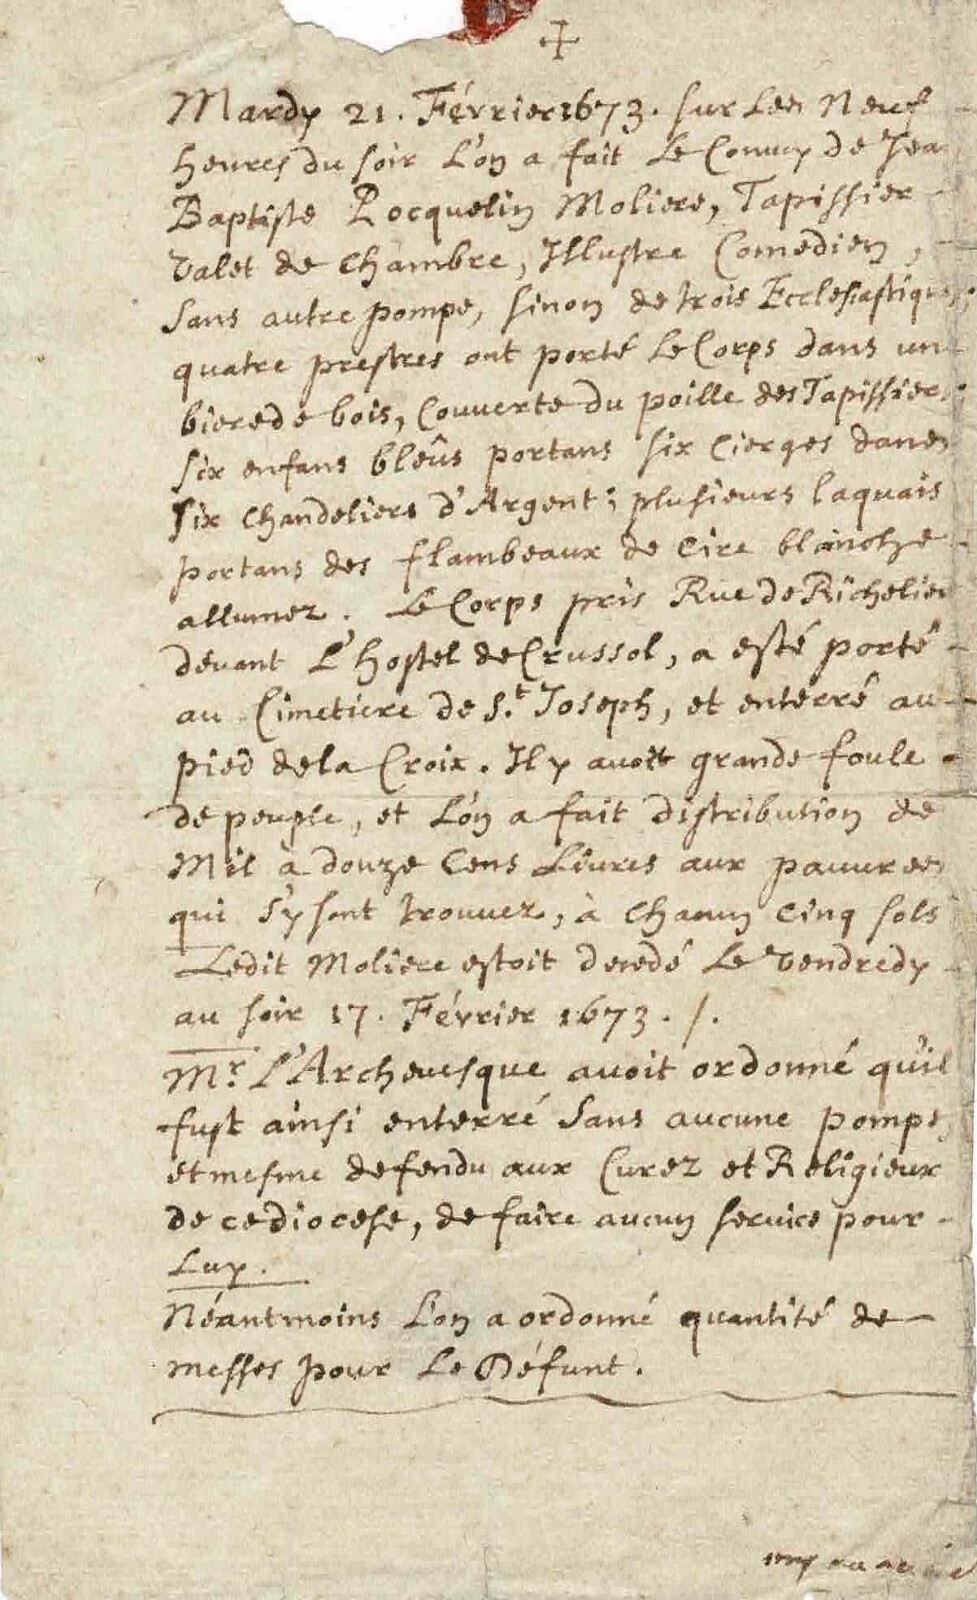 Mardy 21. Février 1673. sur les Neuf
heures du soir L'on a fait Le Convoy de Jea
Baptiste Pocquelin Moliere, Tapissier
Valet de Chambre, Illustre Comedien,
Sans autre pompe, sinon de trois Ecclesiastiques;
quatre prestres ont porté Le Corps dans un
biere de bois, Couverte du poille des Tapissiers.
Six enfans bleûs portans six Cierges dans
six Chandeliers d'Argent; plusieurs laquais
portans des flambeaux de Cire blanche
allumez. Le Corps pris Rue de Richelieu
devant L'hostel de Crussol, a esté porté
au Cimetiere de S.t Joseph, et enterré au
pied de la Croix. Il y avoit grande foule
de peuple, et L'on a fait distribution de
Mil à douze Cens Livres aux pauvres
qui s'y sont trouvez, à Chacun Cinq sols
Ledit Moliere estoit decedé Le Vendredy
au soir 17. Février 1673. /.
Mr. L'Archevesque avoit ordonné qu'il
fust ainsi enterré Sans aucune pompe,
et mesme defendu aux Curez et Religieux
de ce diocese, de faire aucun service pour
Luy.
Néantmoins L'on a ordonné quantité de
messes pour Le Défunt.